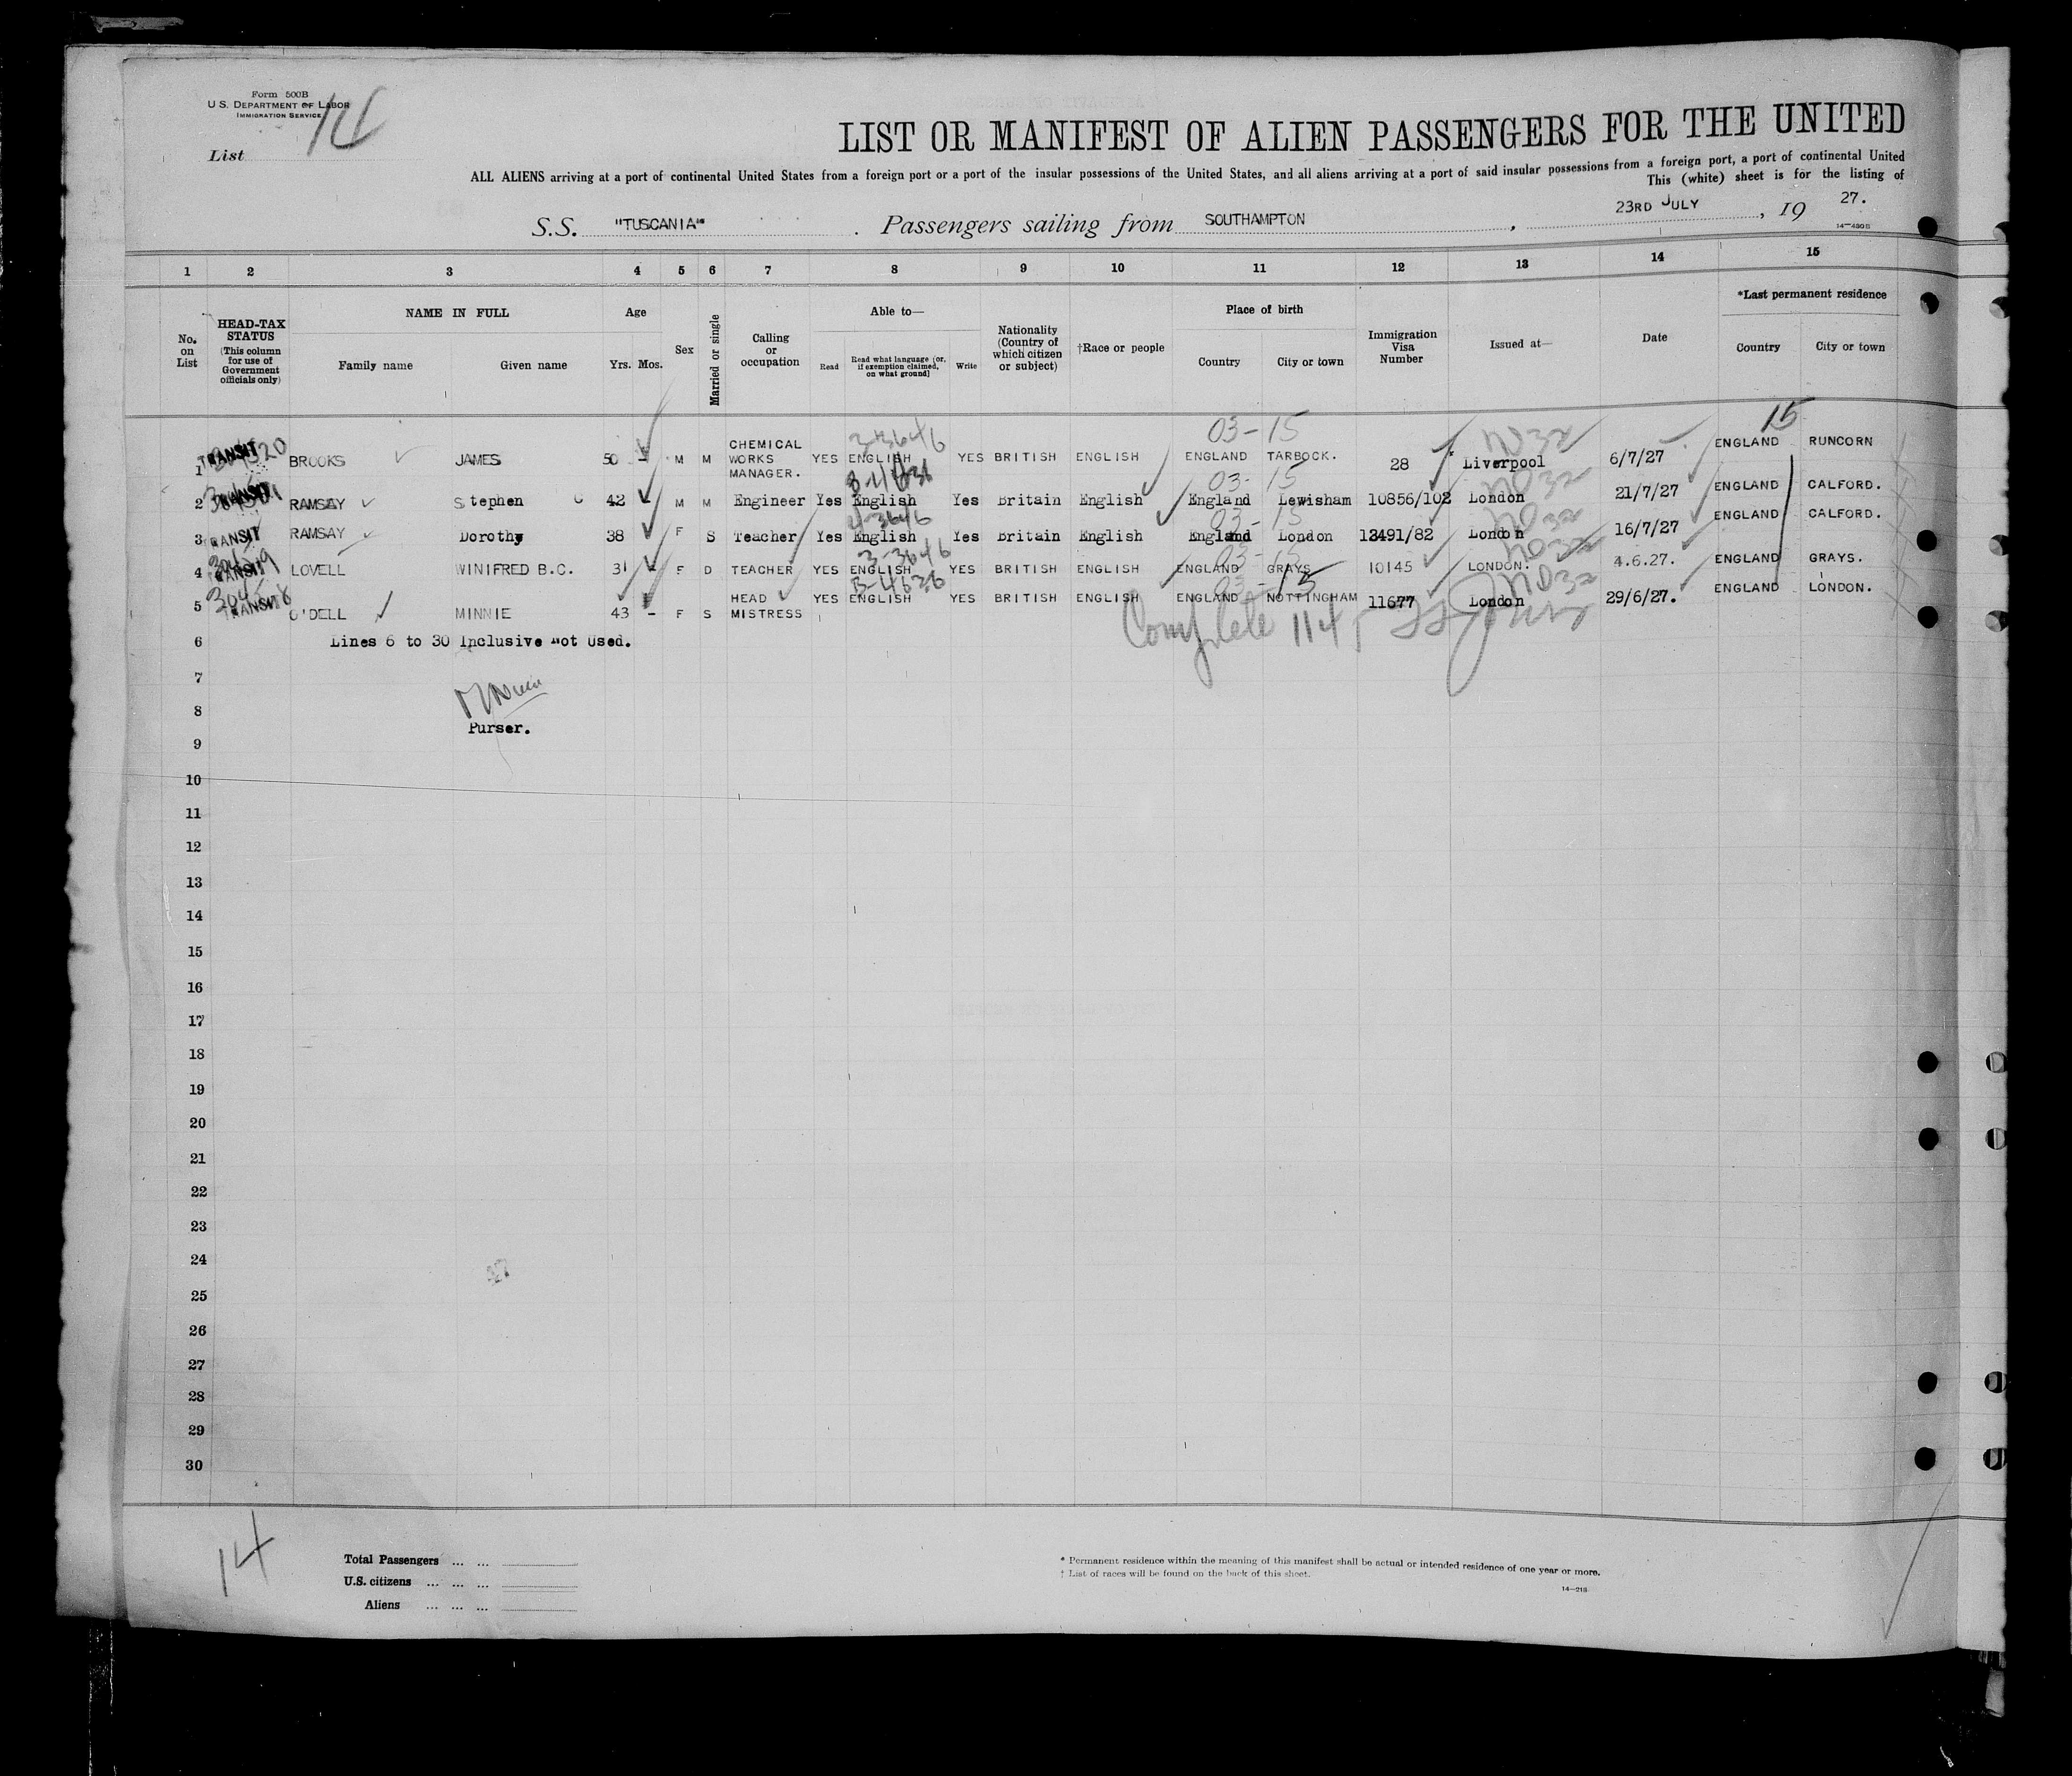 Form 500B
U.S. DEPARTMENT OF LABOR
IMMIGRATION SERVICE
List 14
LIST OR MANIFEST OF ALIEN PASSENGERS FOR THE UNITED
ALL ALIENS arriving at a port of continental United States from a foreign port or a port of the insular possessions of the United States, and all aliens arriving at a port of said insular possessions from a foreign port, a port of continental United
This (white) sheet is for the listing of
S.S. "TUSCANIA" . Passengers sailing from SOUTHAMPTON , 23RD JULY , 19 27.
14—430B
1 2 3 4 5 6 7 8 9 10 11 12 13 14 15
No. on List
HEAD-TAX STATUS (This column for use of Government officials only)
NAME IN FULL
Family name Given name
Age
Yrs. Mos.
Sex
Married or single
Calling or occupation
Able to—
Read Read what language [or, if exemption claimed, on what ground] Write
Nationality (Country of which citizen or subject)
†Race or people
Place of birth
Country City or town
Immigration Visa Number
Issued at—
Date
*Last permanent residence
Country City or town
15
03-15
1 TRANSIT BROOKS JAMES 50 - M M CHEMICAL WORKS MANAGER. YES ENGLISH YES BRITISH ENGLISH ENGLAND TARBOCK. 28 Liverpool 6/7/27 ENGLAND RUNCORN
03-15
2 TRANSIT RAMSAY Stephen C 42 M M Engineer Yes English Yes Britain English England Lewisham 10856/102 London 21/7/27 ENGLAND CALFORD.
03-15
3 TRANSIT RAMSAY Dorothy 38 F S Teacher Yes English Yes Britain English England London 13491/82 London 16/7/27 ENGLAND CALFORD.
3-3646
03-15
4 TRANSIT LOVELL WINIFRED B.C. 31 - F D TEACHER YES ENGLISH YES BRITISH ENGLISH ENGLAND GRAYS 10145 LONDON. 4.6.27. ENGLAND GRAYS.
03-15
5 TRANSIT O'DELL MINNIE 43 - F S HEAD MISTRESS YES ENGLISH YES BRITISH ENGLISH ENGLAND NOTTINGHAM 11677 London 29/6/27. ENGLAND LONDON.
Complete
6 Lines 6 to 30 Inclusive Not Used.
7
8
Purser.
9
10
11
12
13
14
15
16
17
18
19
20
21
22
23
24
25
26
27
28
29
30
14
Total Passengers ... ...
U.S. citizens ... ... ...
Aliens ... ... ...
* Permanent residence within the meaning of this manifest shall be actual or intended residence of one year or more.
† List of races will be found on the back of this sheet.
14—218